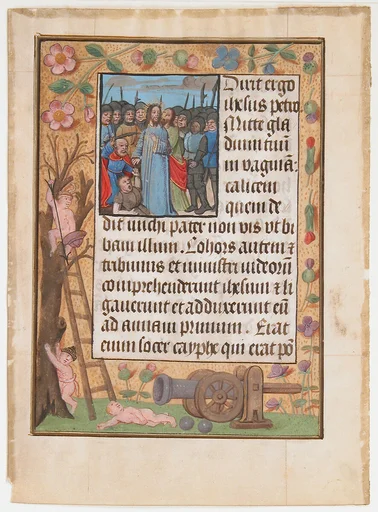 Dixit ergo
ihesus petro
Mitte gla
dium tuū
in vaginā:
calicem
quem de
dit michi pater non vis vt bi
bam illum. Cohors autem et
tribunus et ministri iudeorū
comprehenderunt ihesum et li
gauerunt et adduxerunt eū
ad annam primum. Erat
enim socer cayphe qui erat pō